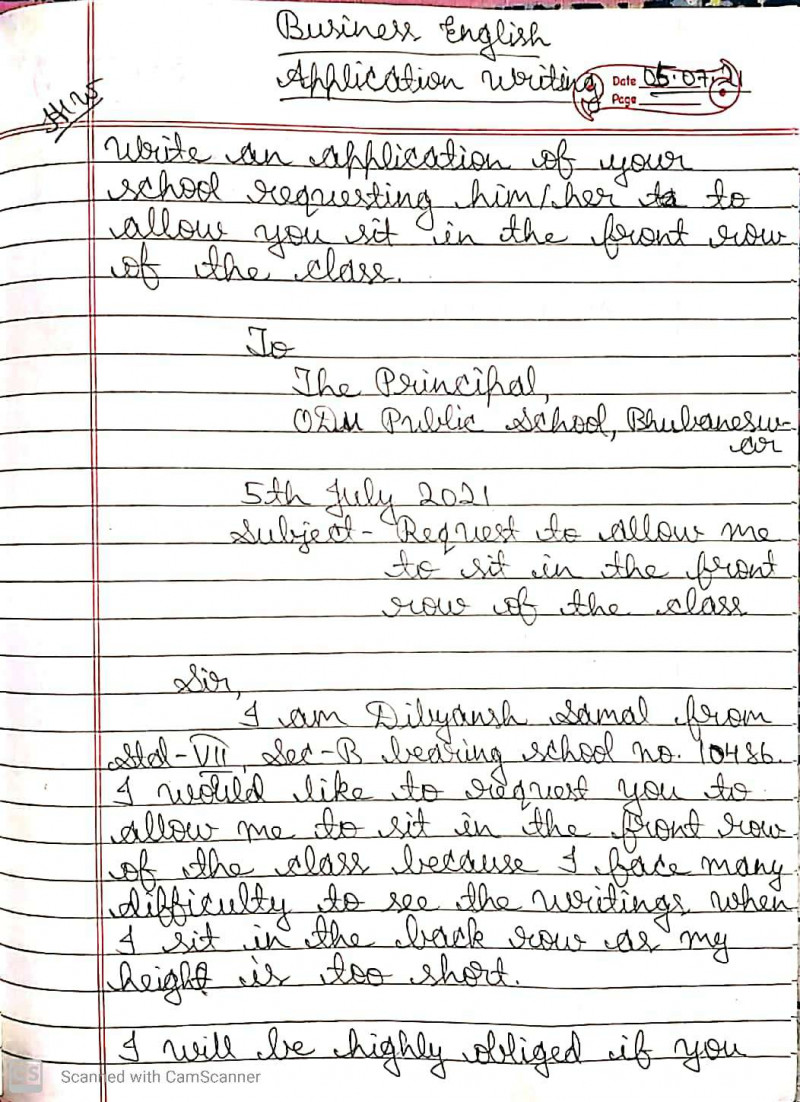 Business English
Application Writing
Date 05.07.21
Page
H.W
Write an application of your
school requesting him/her to to
allow you sit in the front row
of the class.
To
The Principal,
ODM Public School, Bhubanesw-
ar
5th July 2021
Subject- Request to allow me
to sit in the front
row of the class
Sir,
I am Dibyansh Samal from
Std-VII, Sec-B bearing school no. 10486.
I would like to request you to
allow me to sit in the front row
of the class because I face many
difficulty to see the writings when
I sit in the back row as my
height is too short.
I will be highly obliged if you
CS Scanned with CamScanner